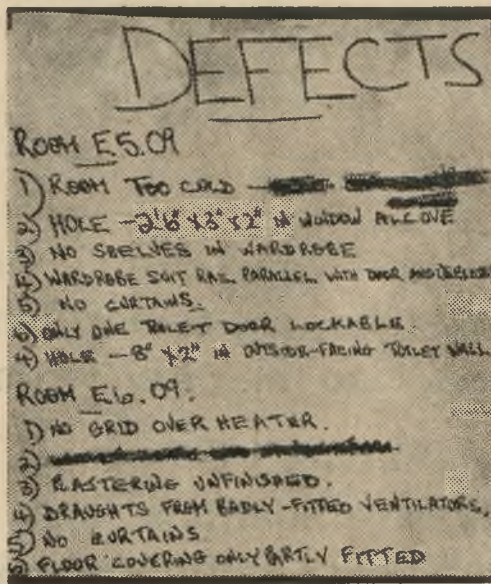 DEFECTS
ROOM E5.09
1) ROOM TOO COLD
2) HOLE - 2'6" x 3" x 2" IN WINDOW ALCOVE
3) NO SHELVES IN WARDROBE
4) WARDROBE SUIT RAIL PARALLEL WITH DOOR AND
5) NO CURTAINS.
6) ONLY ONE TOILET DOOR LOCKABLE.
7) HOLE - 8" x 2" IN OUTSIDE-FACING TOILET WALL
ROOM E6.09.
1) NO GRID OVER HEATER.
2)
3) PLASTERING UNFINISHED.
4) DRAUGHTS FROM BADLY-FITTED VENTILATORS,
5) NO CURTAINS
FLOOR COVERING ONLY PARTLY FITTED